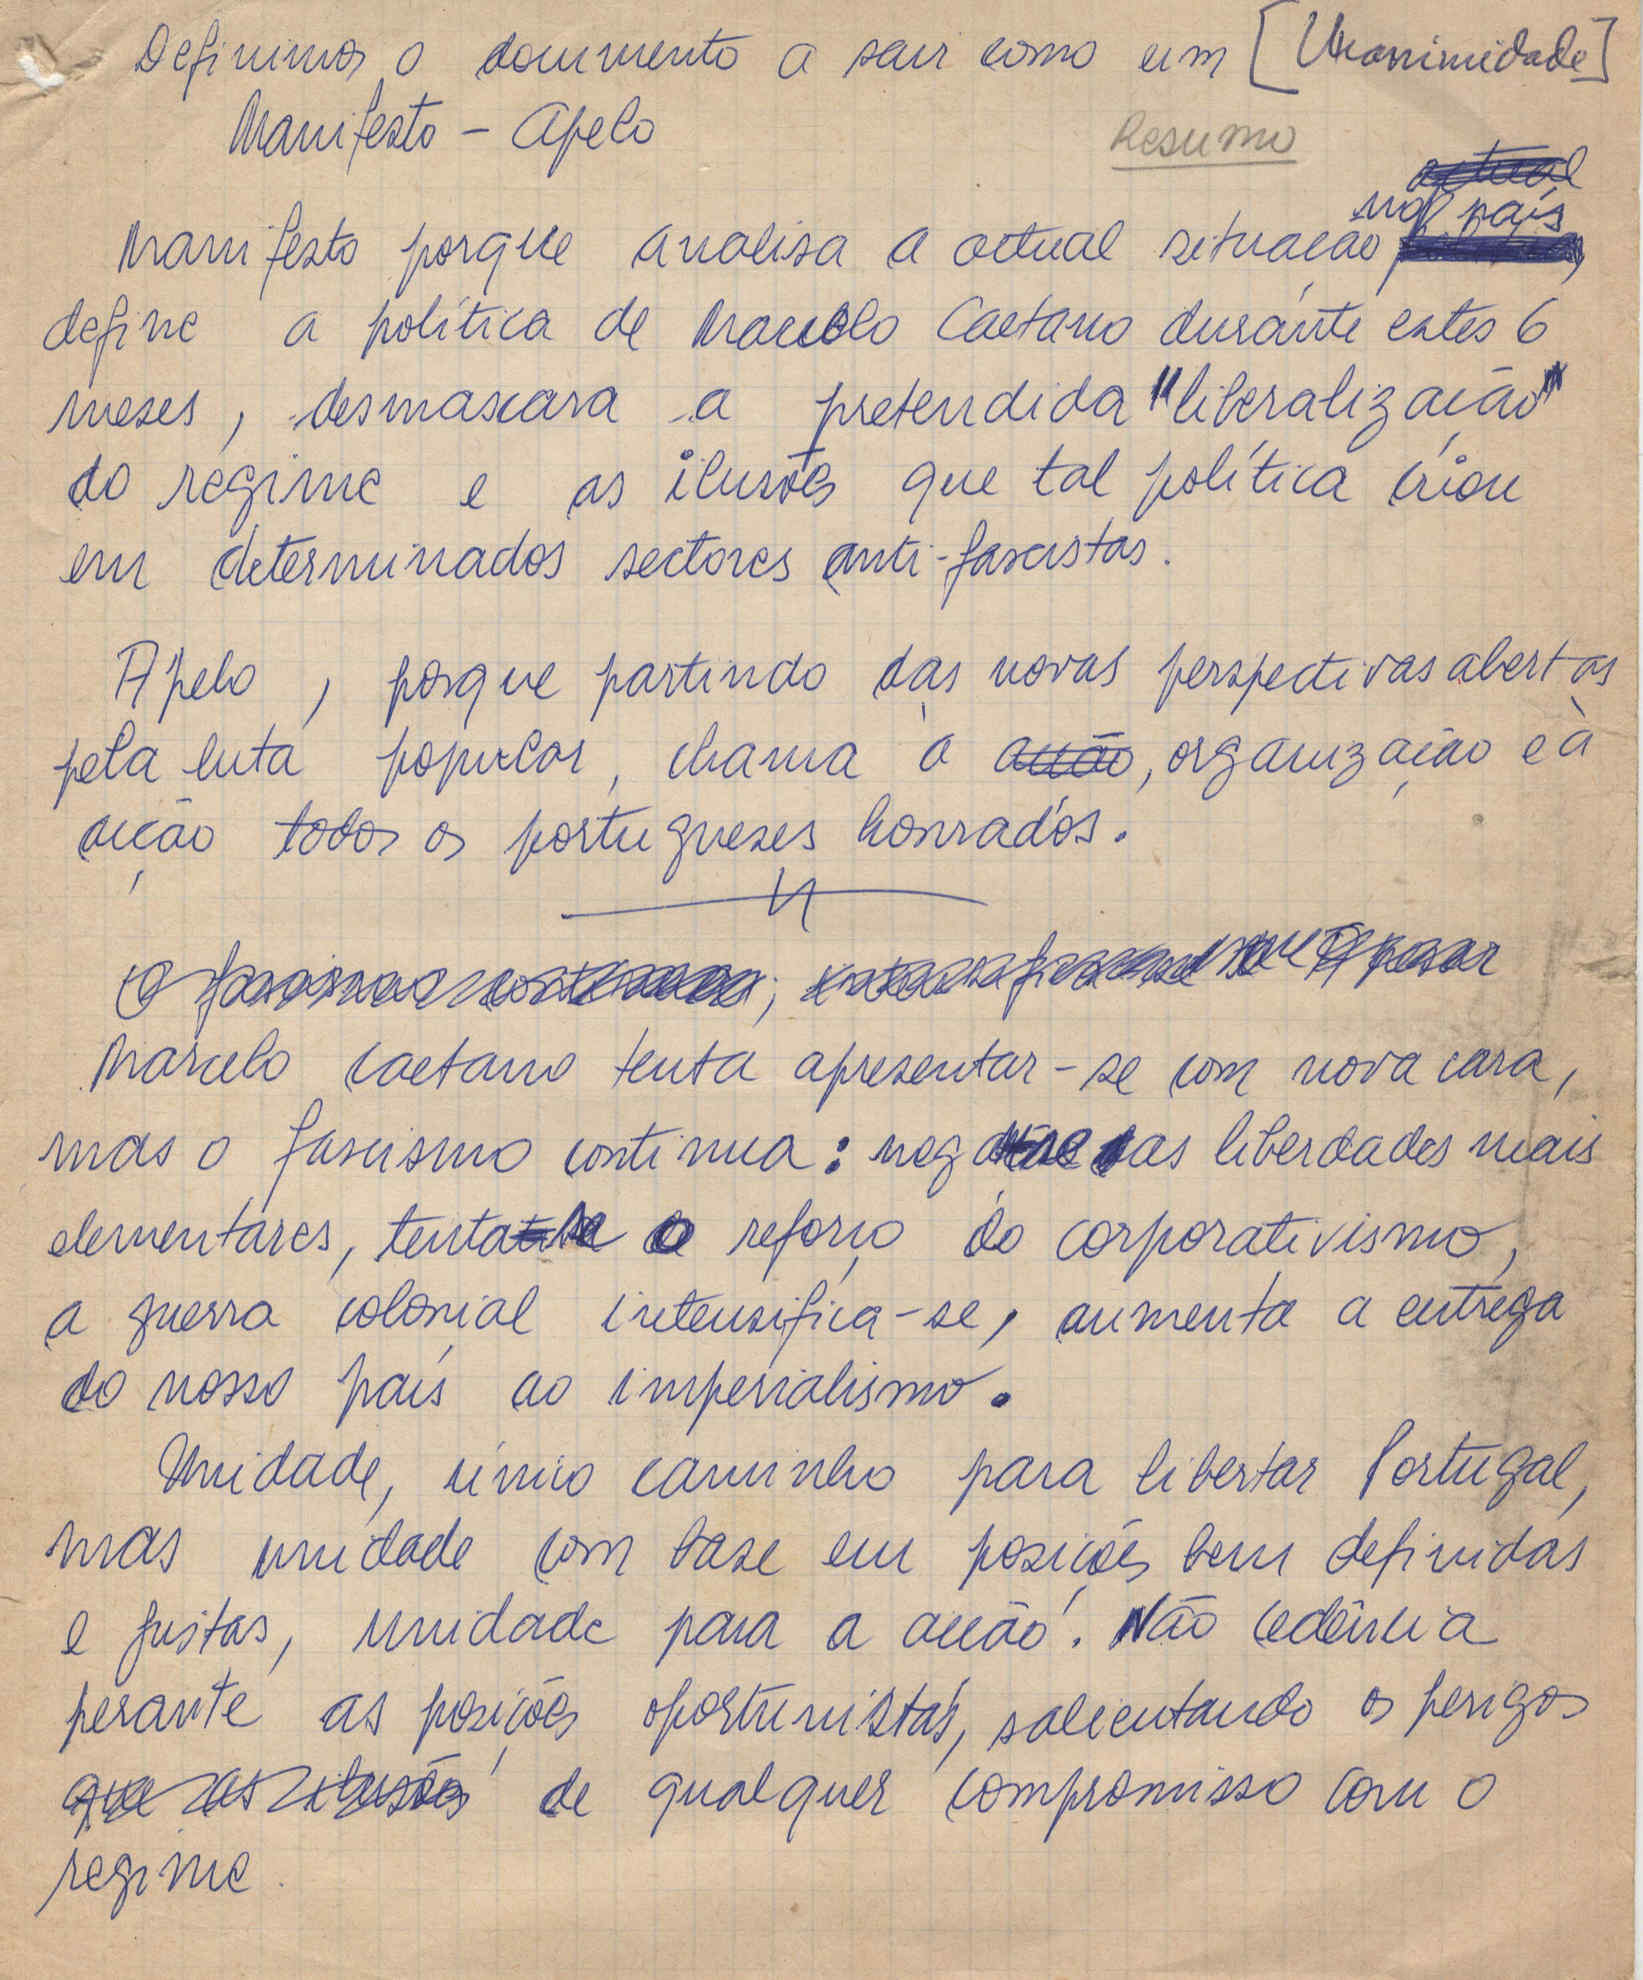 Definimos o documento a sair como um [Unanimidade]
Manifesto - Apelo
Resumo
actual
no país
Manifesto porque analisa a actual situação
define a política de Marcelo Caetano durante estes 6
meses, desmascara a pretendida "liberalização"
do regime e as ilusões que tal política criou
em determinados sectores anti-fascistas.
Apelo, porque partindo das novas perspectivas abertas
pela luta popular, chama à acção, organização e à
acção todos os portugueses honrados.
O fascismo continua;
Marcelo Caetano tenta apresentar-se com nova cara,
mas o fascismo continua: nega as liberdades mais
elementares, tenta o reforço do corporativismo,
a guerra colonial intensifica-se, aumenta a entrega
do nosso país ao imperialismo.
Unidade, único caminho para libertar Portugal,
mas unidade com base em posições bem definidas
e justas, unidade para a acção. Não cedência
perante as posições oportunistas, salientando os perigos
que as ilusões de qualquer compromisso com o
regime.